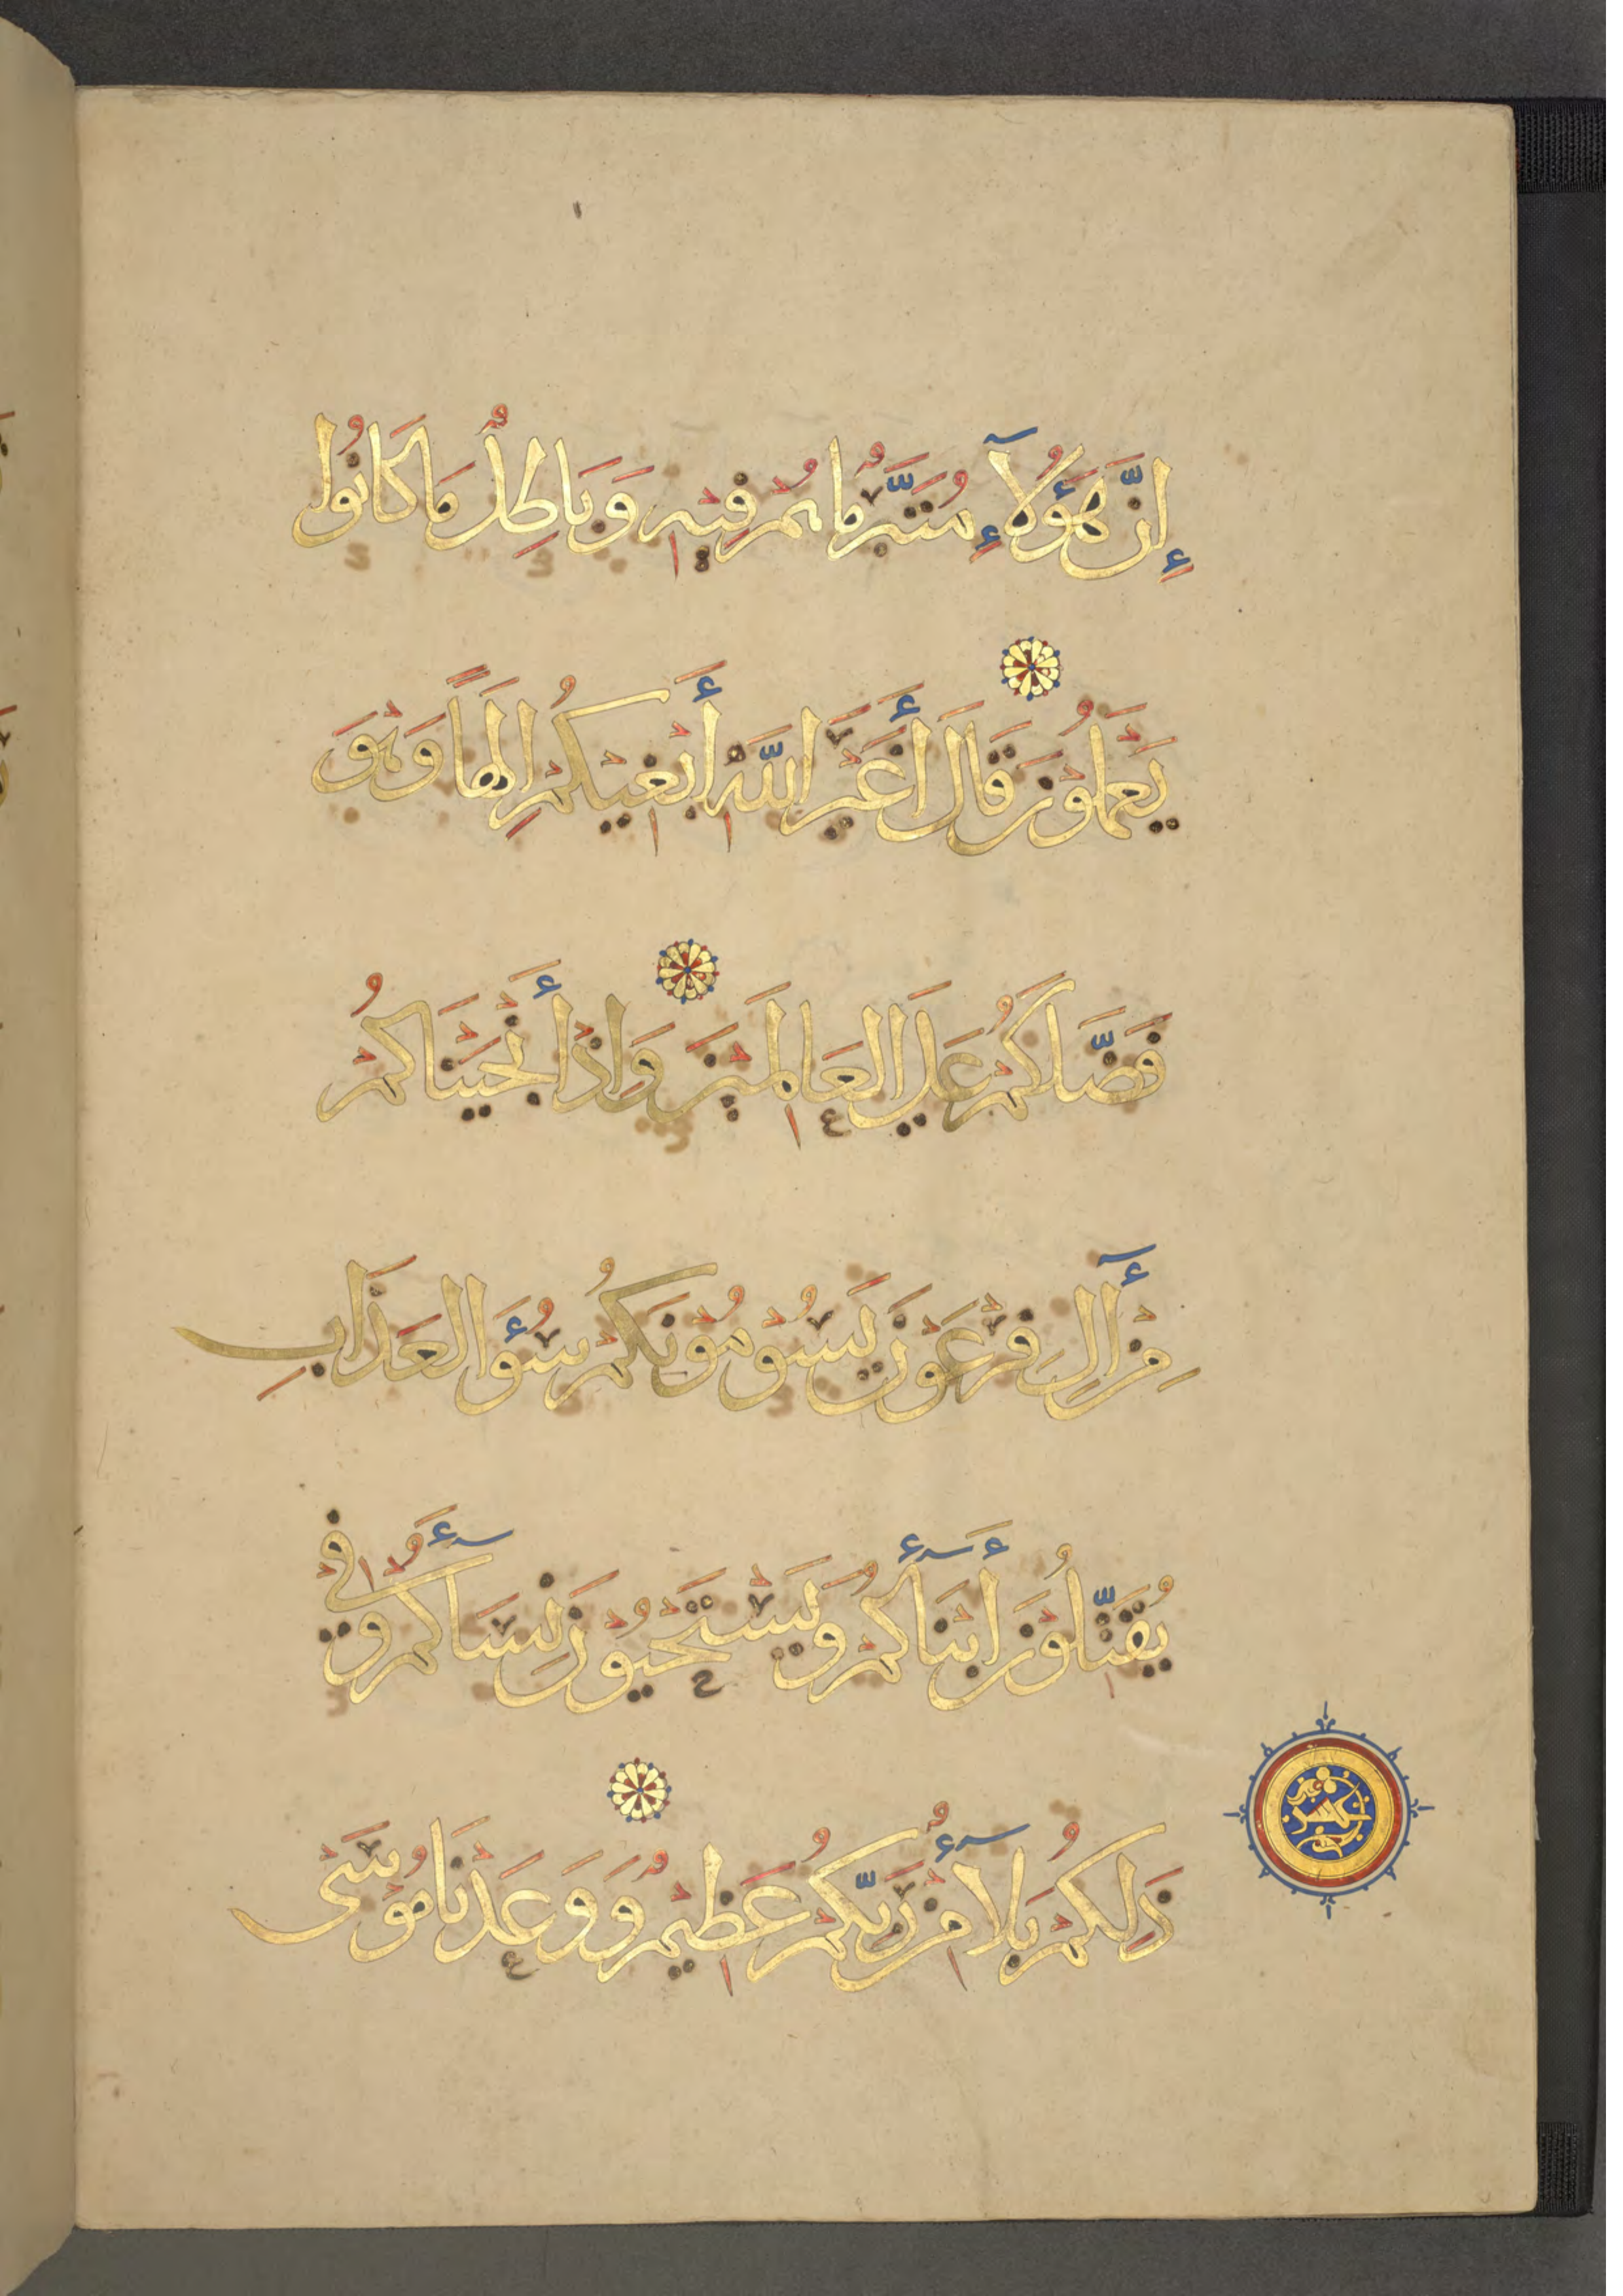 إِنَّ هَؤُلَآءِ مُتَبَّرٌ مَا هُمْ فِيْهِ وَبَاطِلٌ مَا كَانُوا
يَعْمَلُوْنَ قَالَ أَغَيْرَ اللَّهِ أَبْغِيْكُمْ إِلَهًا وَهْوَ
فَضَّلَكُمْ عَلَى الْعَالَمِيْنَ وَإِذْ أَنْجَيْنَاكُمْ
مِنْ آلِ فِرْعَوْنَ يَسُوْمُوْنَكُمْ سُوْءَ الْعَذَابِ
يُقَتِّلُوْنَ أَبْنَآءَكُمْ وَيَسْتَحْيُوْنَ نِسَآءَكُمْ وَفِي
ذَلِكُمْ بَلَآءٌ مِنْ رَبِّكُمْ عَظِيْمٌ وَوَعَدْنَا مُوْسَى